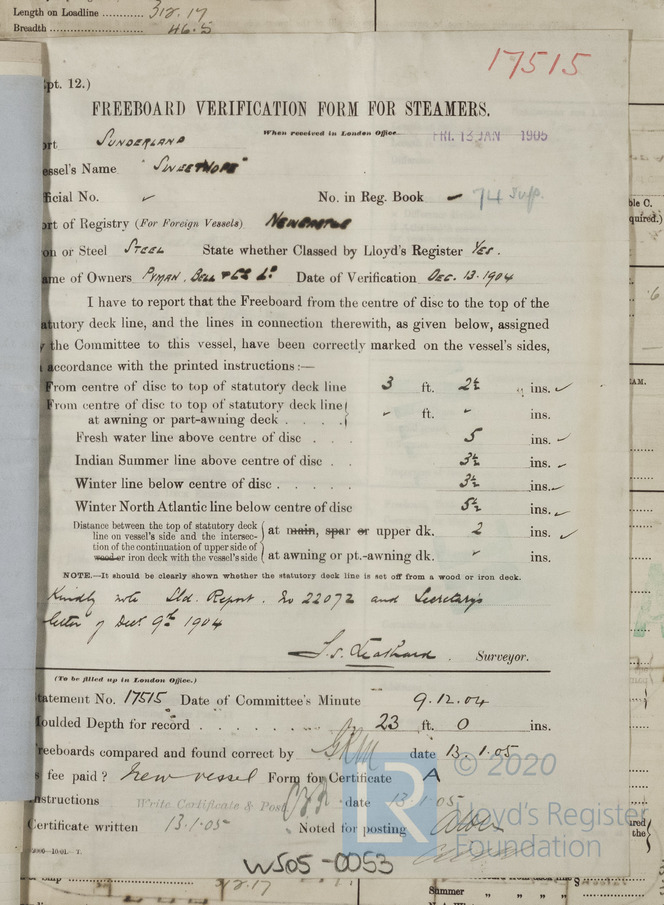 Length on Loadline ............ 312.17
Breadth .......................... 46.5
17515
pt. 12.)
FREEBOARD VERIFICATION FORM FOR STEAMERS.
When received in London Office FRI. 13 JAN 1905
ort SUNDERLAND
essel's Name "SWEETHOPE"
ficial No. ✓ No. in Reg. Book 74 Sup.
ort of Registry (For Foreign Vessels) NEWCASTLE
on or Steel STEEL State whether Classed by Lloyd's Register YES.
ame of Owners PYMAN, BELL & Co Ld. Date of Verification DEC. 13. 1904
I have to report that the Freeboard from the centre of disc to the top of the
atutory deck line, and the lines in connection therewith, as given below, assigned
the Committee to this vessel, have been correctly marked on the vessel's sides,
accordance with the printed instructions :—
From centre of disc to top of statutory deck line 3 ft. 2½ ins. ✓
From centre of disc to top of statutory deck line
at awning or part-awning deck . . . . ft. ins.
Fresh water line above centre of disc . . . 5 ins. ✓
Indian Summer line above centre of disc . . 3½ ins. ✓
Winter line below centre of disc . . . . . 3½ ins. ✓
Winter North Atlantic line below centre of disc 5½ ins. ✓
Distance between the top of statutory deck
line on vessel's side and the intersec- at main, spar or upper dk. 2 ins. ✓
tion of the continuation of upper side of
wood or iron deck with the vessel's side at awning or pt.-awning dk. ins.
NOTE.—It should be clearly shown whether the statutory deck line is set off from a wood or iron deck.
Kindly note Sld. Report. No 22072 and Secretary's
letter of Dect 9th 1904
Surveyor.
(To be filled up in London Office.)
tatement No. 17515 Date of Committee's Minute 9.12.04
oulded Depth for record . . . . . . . . 23 ft. 0 ins.
reeboards compared and found correct by date 13.1.05
s fee paid ? New vessel Form for Certificate A
nstructions Write Certificate & Post date 13.1.05
Certificate written 13.1.05 Noted for posting
© 2020
LR
Lloyd's Register
Foundation
WS05-0053
312.17
Summer